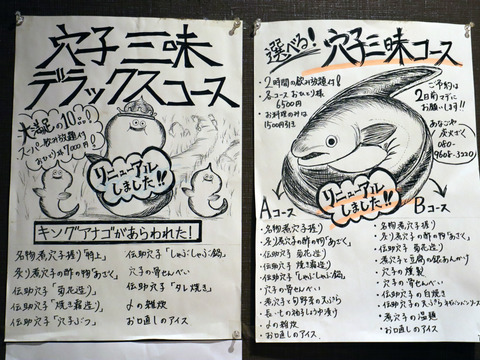 穴子三昧
デラックスコース
大満足の10品!!
スーパー飲み放題付
おひとり様7000円!
リニューアル
しました!!
キングアナゴがあらわれた!
名物煮穴子握り「特上」
炙り煮穴子の酢の物「あさく」
伝助穴子「菊花造り」
伝助穴子「焼き霜造り」
伝助穴子「穴子ぶつ」
伝助穴子「しゃぶしゃぶ鍋」
穴子の骨せんべい
伝助穴子「タレ焼き」
〆の雑炊
お口直しのアイス
選べる!
穴子三昧コース
2時間の飲み放題付!
各コースおひとり様
6500円
お料理のみは
1500円引き
ご予約は
2日前マデに
お願いします!!
あなごや
炭ざく
080-
9608-3220
リニューアル
しました!!
Aコース
・名物煮穴子握り
・炙り煮穴子の酢の物"あさく"
・伝助穴子 菊花造り
・伝助穴子 焼き霜造り
・伝助穴子「しゃぶしゃぶ鍋」
・穴子の骨せんべい
・煮穴子と旬野菜の天ぷら
・長いもの柚子しょうゆ漬け
・〆の雑炊
・お口直しのアイス
Bコース
・名物煮穴子握り
・炙り煮穴子の酢の物"あさく"
・伝助穴子 菊花造り
・煮穴子と豆腐の銀あんかけ
・穴子の燻製
・穴子の骨せんべい
・伝助穴子の白焼き
・煮穴子の温麺
・お口直しのアイス